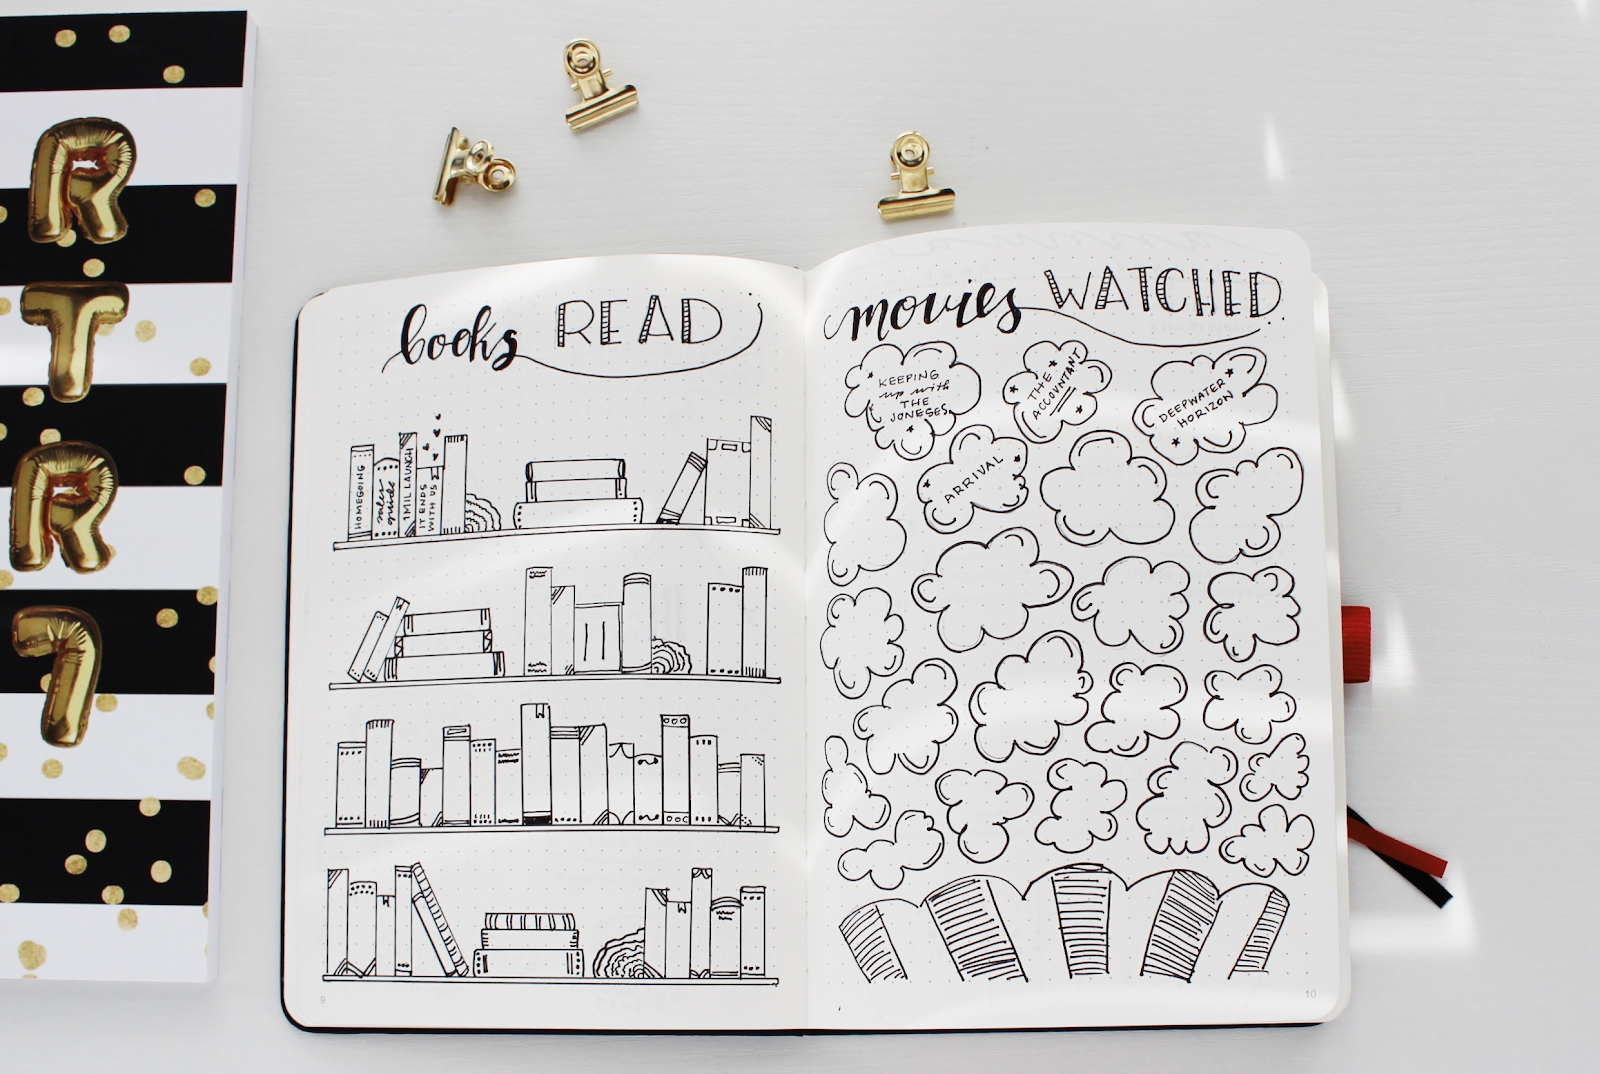 R
T
R
7
books READ
HOMEGOING
sales
guide
1 MIL LAUNCH
IT ENDS
WITH US
9
movies WATCHED.
KEEPING
up with
THE
JONESES
THE
ACCOUNTANT
DEEPWATER
HORIZON
ARRIVAL
10